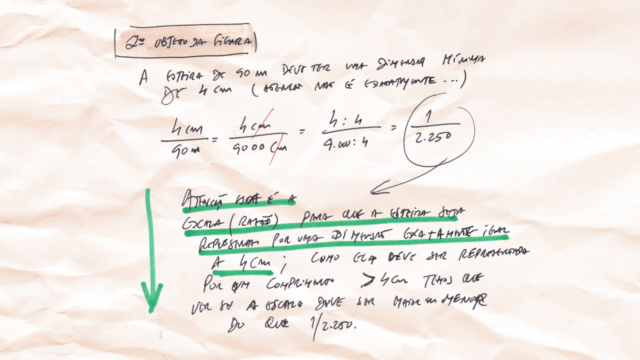 2º OBJETO DA FIGURA
A ESTEIRA DE 90 m DEVE TER UMA DIMENSÃO MÍNIMA
DE 4 cm (ATENÇÃO NÃO É EXATAMENTE...)
4 cm / 90 m = 4 cm / 9000 cm = 4:4 / 9.000:4 = 1 / 2.250
ATENÇÃO ESSA É A
ESCALA (RAZÃO) PARA QUE A ESTEIRA SEJA
REPRESENTADA POR UMA DIMENSÃO EXATAMENTE IGUAL
A 4 cm; COMO ELA DEVE SER REPRESENTADA
POR UM COMPRIMENTO > 4 cm TEMOS QUE
VER SE A ESCALA DEVE SER MAIOR OU MENOR
DO QUE 1/2.250.